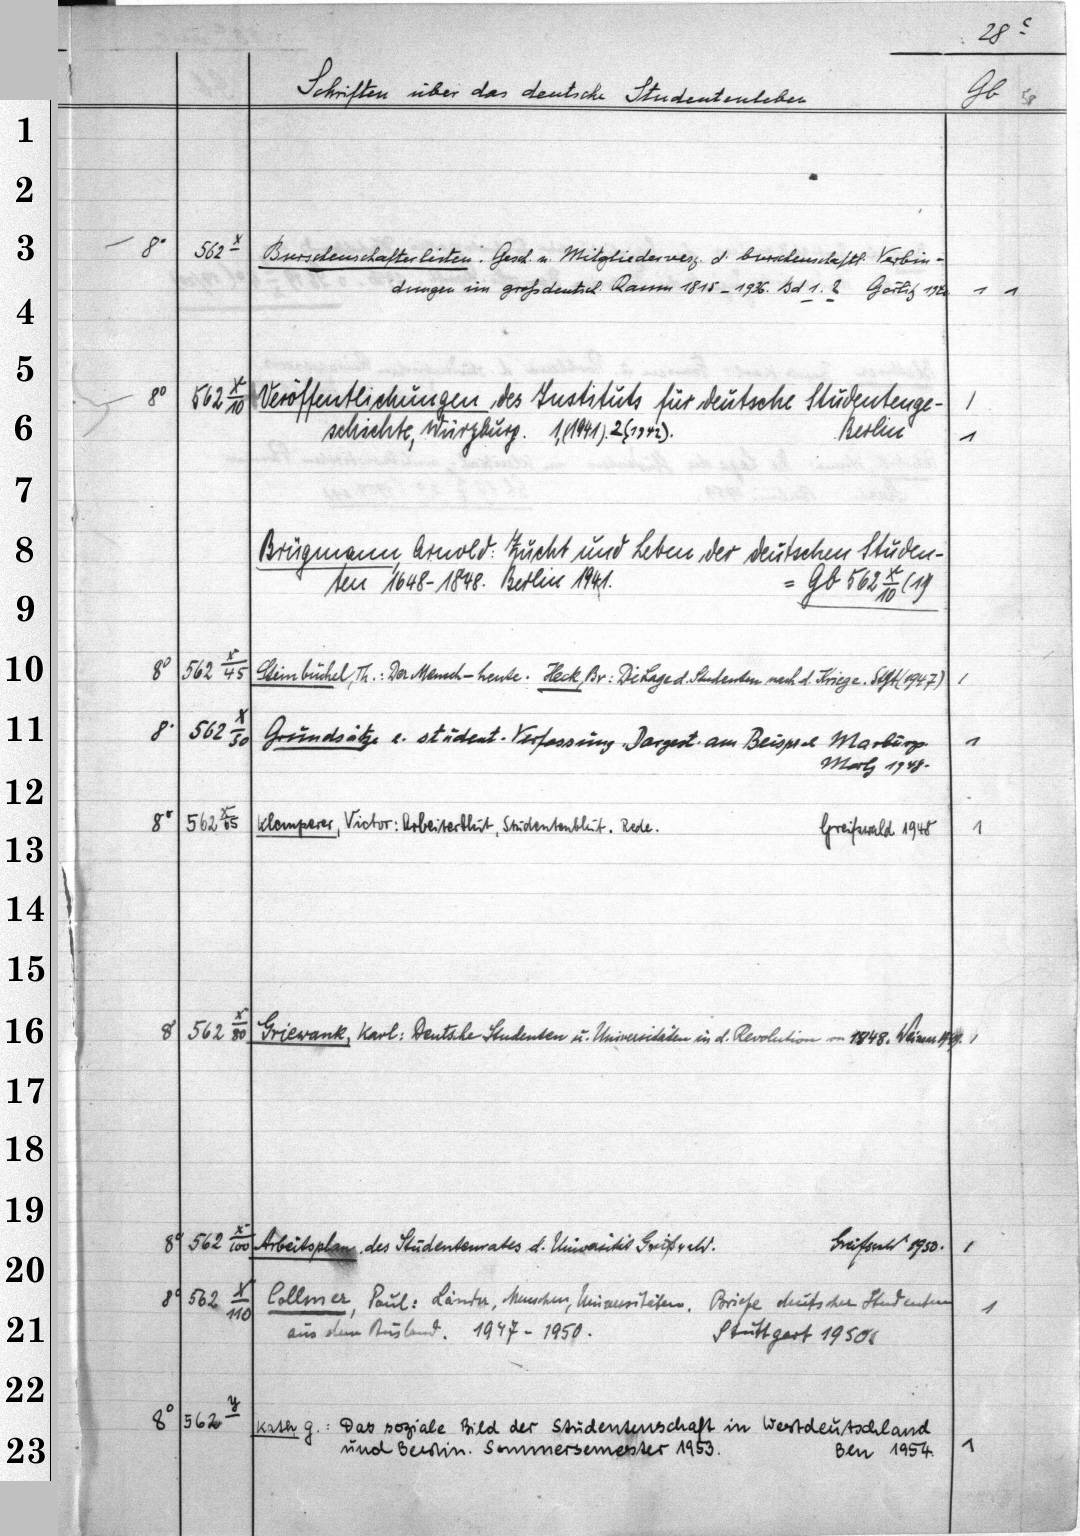 28 c
Schriften über das deutsche Studentenleben Gb
1
2
3 8° 562 x Burschenschafterlisten. Gesch. u. Mitgliederverz. d. burschenschaftl. Verbin-
dungen im grossdeutsch. Raum 1815-1936. Bd 1. 2 Görlitz 1 1
4
5
8° 562 x/10 Veröffentlichungen des Instituts für deutsche Studentenge- 1
6 schichte, Würzburg. 1,(1941). 2(1942). Berlin 1
7
8 Brügmann, Arnold: Zucht und Leben der deutschen Studen-
ten 1648-1848. Berlin 1941. = Gb 562 x/10 (1)
9
10 8° 562 x/45 Steinbüchel, Th.: Der Mensch heute. Heck, Br: Die Lage d. Studenten nach d. Kriege. Stgt (1947) 1
11 8° 562 x/50 Grundsätze e. student. Verfassung. Dargest. am Beispiel Marburg. 1
Marbg 1948.
12
8° 562 x/65 Klemperer, Victor: Arbeiterblut, Studentenblut. Rede. Greifswald 1948 1
13
14
15
16 8° 562 x/80 Griewank, Karl: Deutsche Studenten u. Universitäten in d. Revolution von 1848. Weimar 1949. 1
17
18
19
8° 562 x/100 Arbeitsplan des Studentenrates d. Universität Greifswald. Greifswald 1950. 1
20
8° 562 x/110 Collmer, Paul: Länder, Menschen, Universitäten. Briefe deutscher Studenten 1
21 aus dem Ausland. 1947-1950. Stuttgart 1950
22
8° 562 y Kath, G.: Das soziale Bild der Studentenschaft in Westdeutschland
23 und Berlin. Sommersemester 1953. Bln 1954. 1